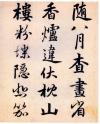 随八月查畫省
香爐違伏枕山
樓粉堞隱悲笳